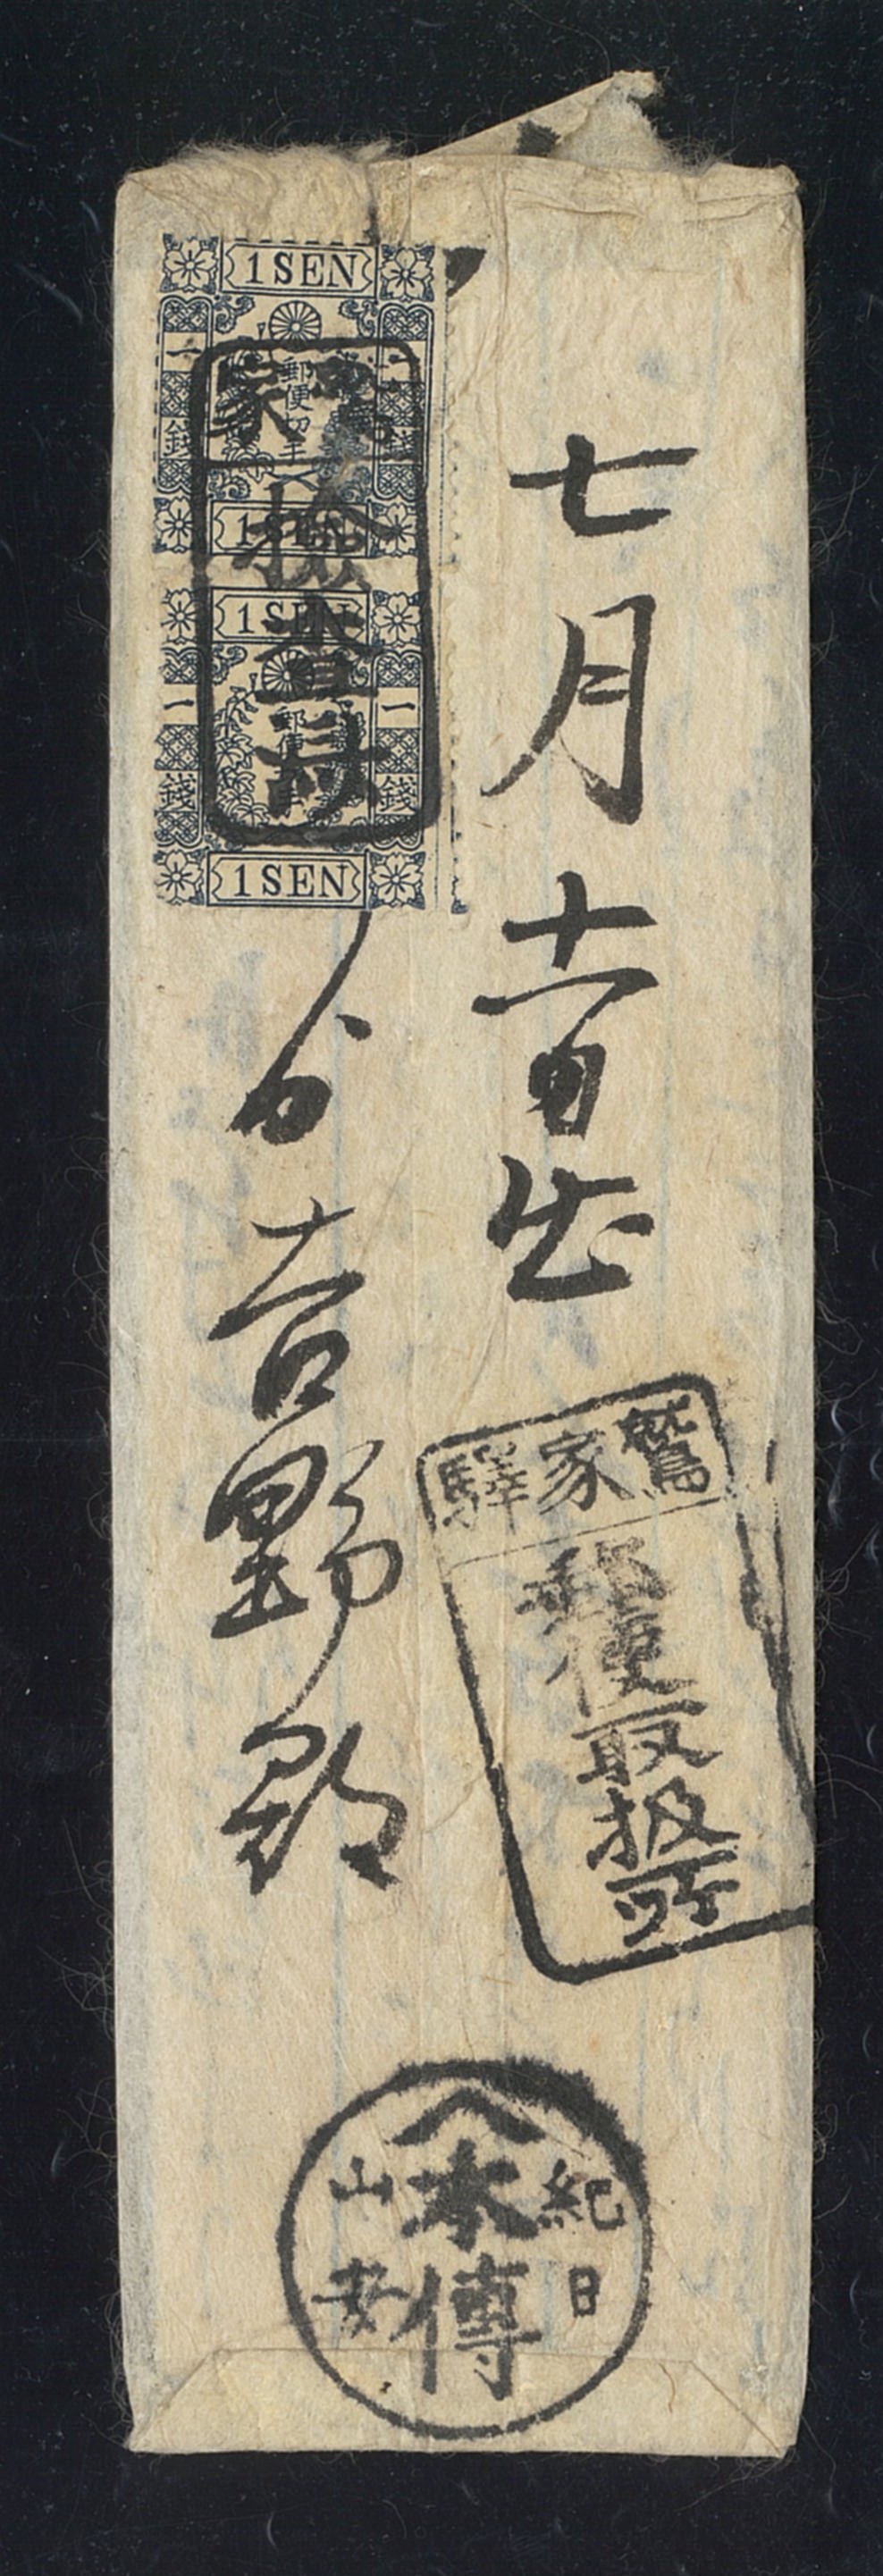 七月十一日出
吉野郡
1 SEN
一
錢
郵便切手
1 SEN
1 SEN
一
一
錢
錢
1 SEN
家
拾壹
鷲家驛
郵便取扱所
紀
日
本傳
山
安